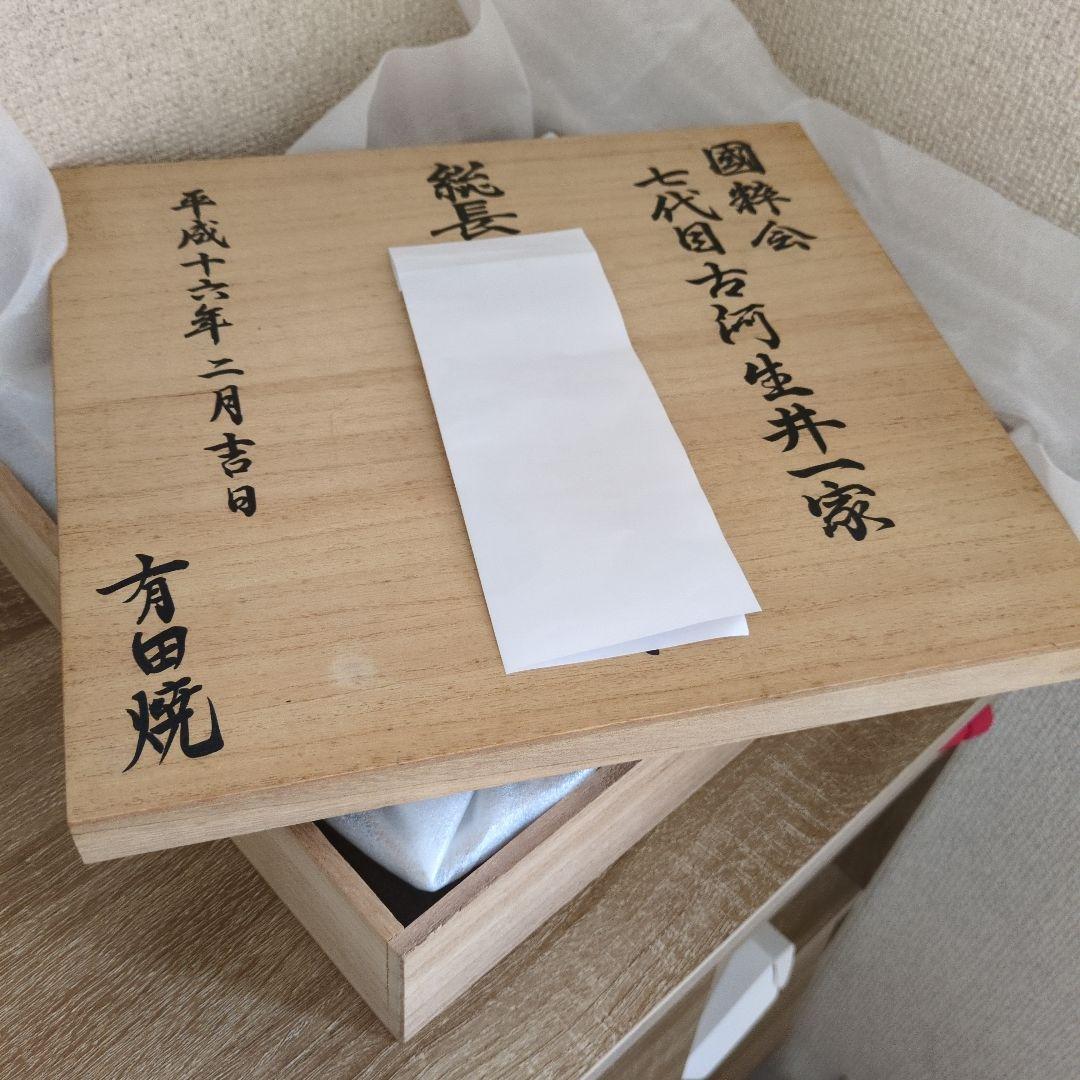 國粋会
七代目古河生井一家
総長
平成十六年二月吉日
有田焼